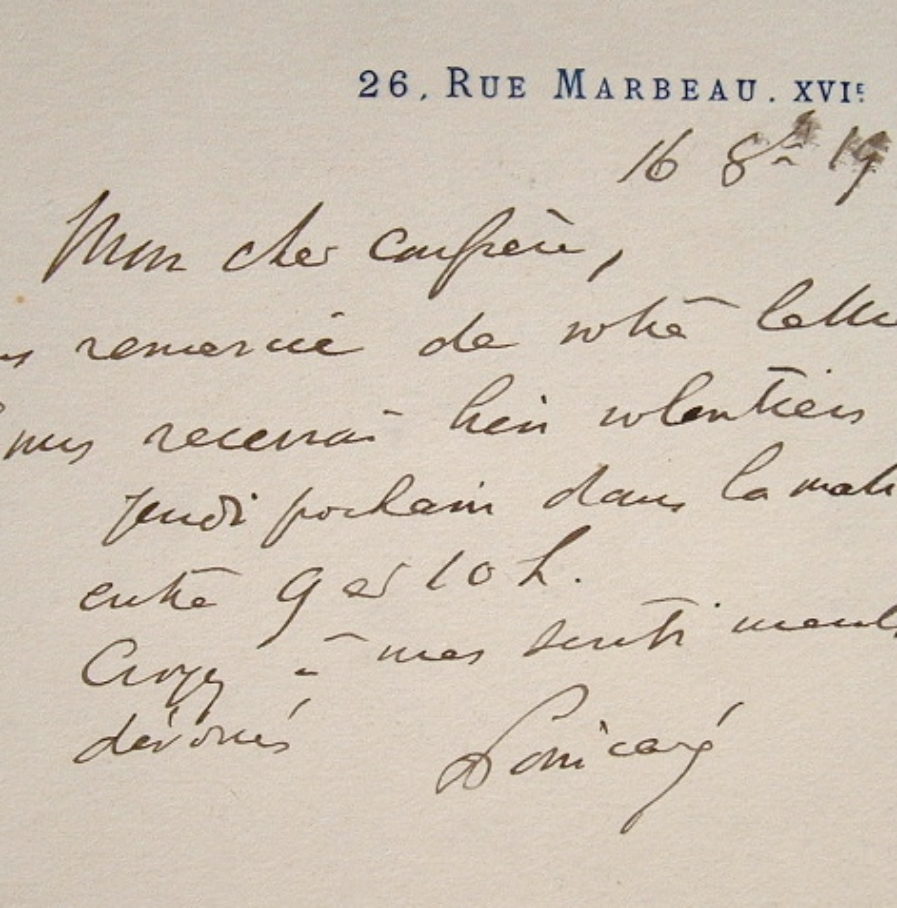 26, RUE MARBEAU. XVIE.
16 8bre 19
Mon cher confrère,
remercie de votre lettre
vous recevrai bien volontiers
jeudi prochain dans la mati
entre 9 et 10 h.
Croyez à mes sentiments
dévoués Poincaré